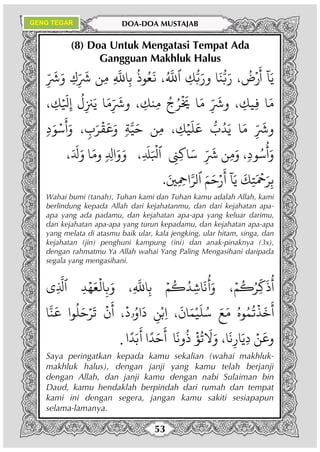 GENG TEGAR
DOA-DOA MUSTAJAB
(8) Doa Untuk Mengatasi Tempat Ada
Gangguan Makhluk Halus
يَآ أَرْضُ، رَبُّنَا وربُّكِ ٱللهُ، نَعُوذُ بِاللهِ مِن شَرِّكِ وَشَرِّ
مَا فِيكِ، وشَرِّ مَا يَخْرُجُ مِنكِ، وشَرِّمَا يَنزِلُ إِلَيْكِ،
وشَرِّ مَا يَدُبُّ عَلَيْكِ، مِن حَيَّةٍ وَعَقْرَبٍ، وَأَسْوَدٍ
وَأُسُودٍ، وَمِن شَرِّ سَاكِنِي ٱلْبَلَدِ، وَوَالِدٍ وما وَلَدَ،
بِرَحْمَتِكَ يَآ أَرْحَمَ ٱلرَّاحِمِينَ.
Wahai bumi (tanah), Tuhan kami dan Tuhan kamu adalah Allah, kami
berlindung kepada Allah dari kejahatanmu, dan dari kejahatan apa-
apa yang ada padamu, dan kejahatan apa-apa yang keluar darimu,
dan kejahatan apa-apa yang turun kepadamu, dan kejahatan apa-apa
yang melata di atasmu baik ular, kala jengking, ular hitam, singa, dan
kejahatan (jin) penghuni kampung (ini) dan anak-pinaknya (3x),
dengan rahmatmu Ya Allah wahai Yang Paling Mengasihani daripada
segala yang mengasihani.
أُذَكِّرُكُمْ، وَأُنَاشِدُكُمْ بِاللهِ، وَبِالْعَهْدِ ٱلَّذِي
أَخَذْتُمُوهُ مَعَ سُلَيْمَانَ، ابْنِ دَاوُرْد، أَنْ تَرْحَلُوا عَنَّا
وَعَن دِيَارِنَا، وَلَا تُؤْذُونَا أَحَدًا أَبَدًا.
Saya peringatkan kepada kamu sekalian (wahai makhluk-
makhluk halus), dengan janji yang kamu telah berjanji
dengan Allah, dan janji kamu dengan nabi Sulaiman bin
Daud, kamu hendaklah berpindah dari rumah dan tempat
kami ini dengan segera, jangan kamu sakiti sesiapapun
selama-lamanya.
53